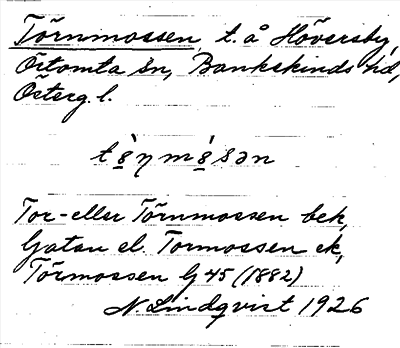 Törnmossen, t. å Höversby,
Örtomta sn, Bankekinds hd,
Österg. l.
tö̀ŋmósən
Tor- eller Törnmossen bek,
Gatan el. Tormossen ek,
Törmossen G 45 (1882)
N. Lindqvist 1926